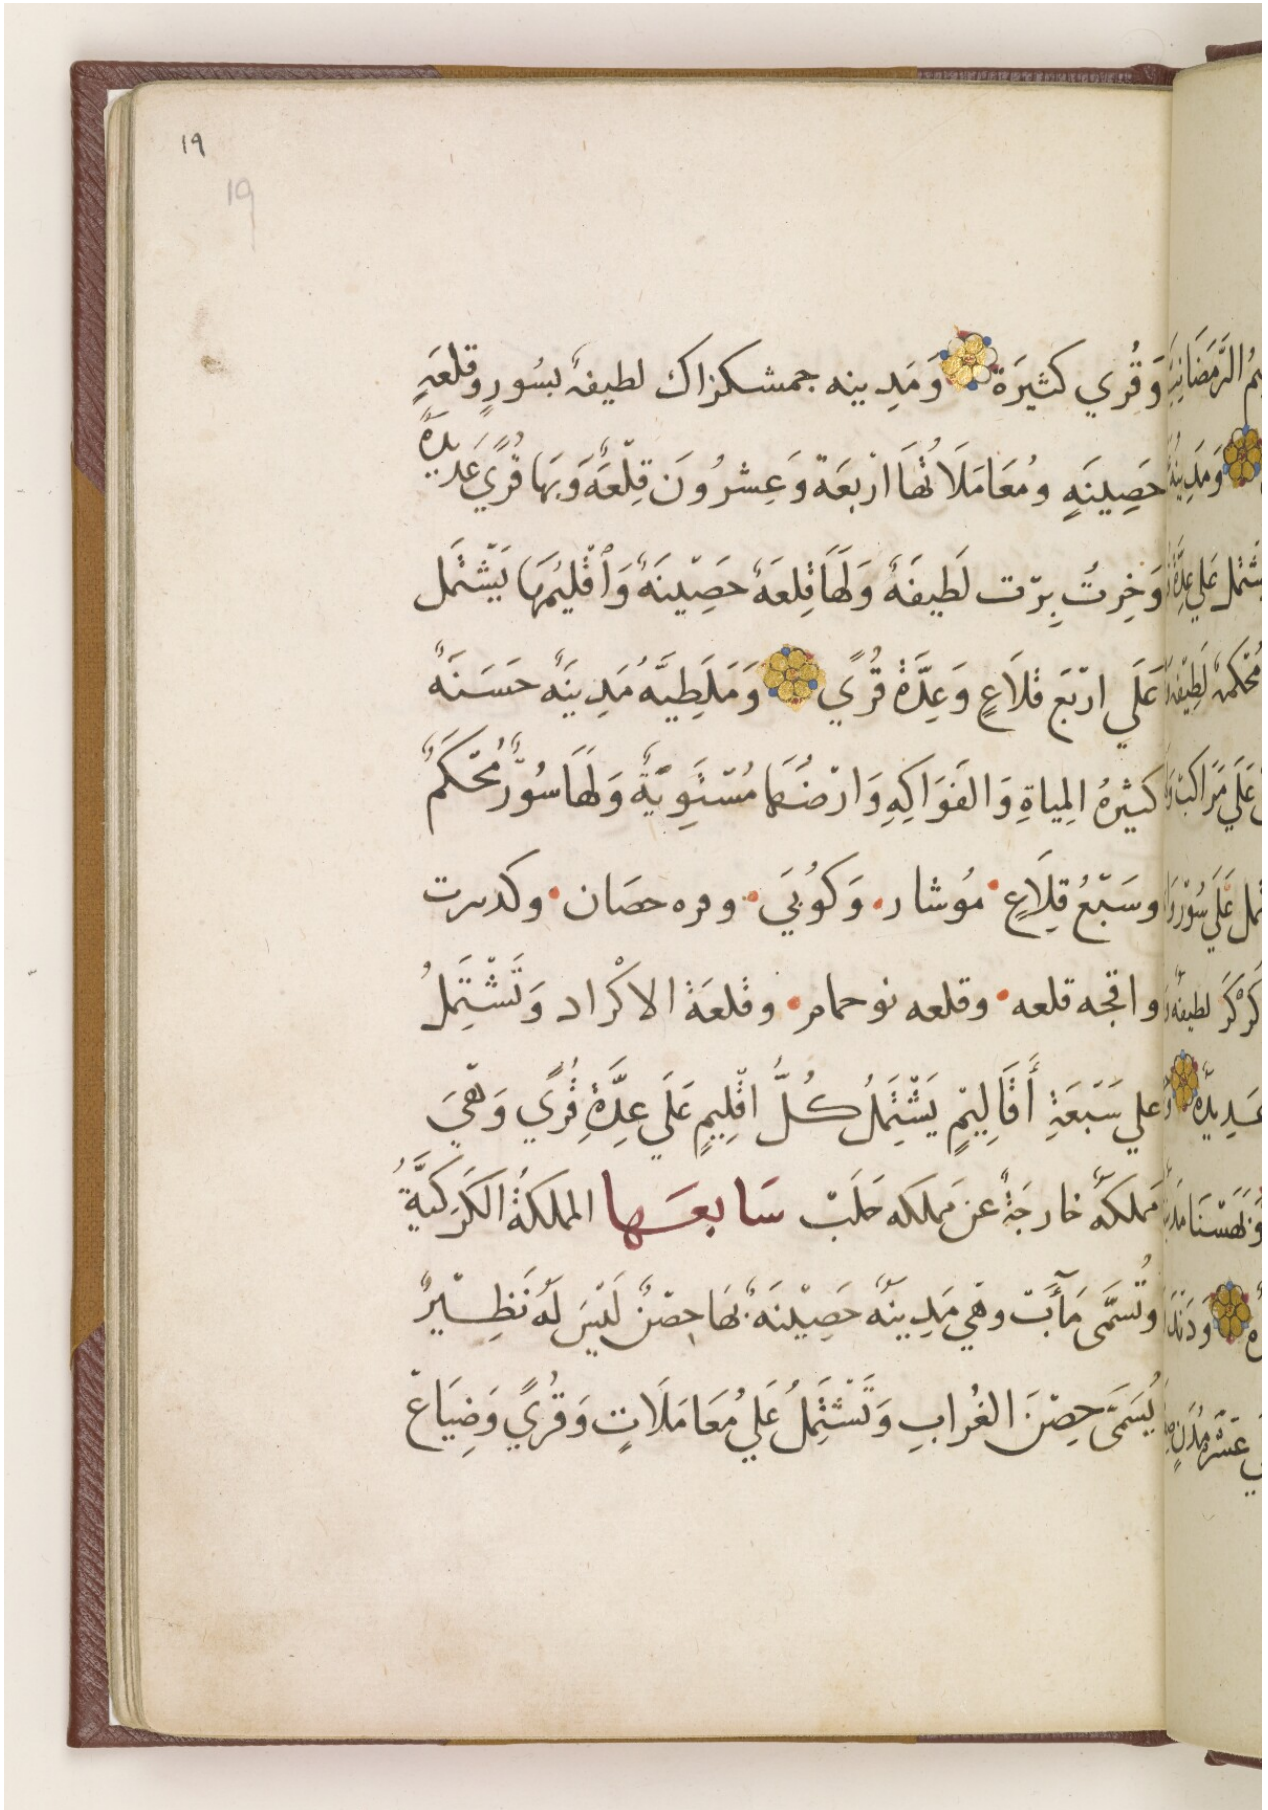 19
19
وَقُري كثيرَة وَمَدِينه جمشكزاك لطيفهٌ بسُورٍ وقلعَهٍ
حَصِينَهٍ ومُعَامَلَاتُهَا ارْبعَة وَعِشرُونَ قِلْعَهً وَبهَا قُرًي عَدِيدَةٌ
وَخِرتُ بِرْت لَطِيفَهٌ وَلَهَا قِلعَهٌ حَصِيْنَهٌ وَاقْلِيُمهَا يَشْتَمل
عَلَي ارْبَع قلَاعٍ وَعِدَّة قُرًي وَمَلَطِيَّه مَدِينَهٌ حَسَنَهٌ
كثيرهُ المِياةِ وَالفَوَاكِهِ وَارْضُهَا مُسْتَوِيَةٌ وَلَهَا سُوْرٌ مُحْكَمٌ
وسَبْعُ قِلَاعٍ مُوشار وَكوُبَي وَمره حصَان وكدىرت
واقجه قلعه وقلعه نوحمام وقلعَة الاكْراد وَتَشْتَمِلُ
علي سَبَعَةِ أَقَالِيْمٍ يَشْتَمِلُ كُلُّ اقْلِيمٍ عَلَي عِدَّةِ قُرًي وَهْيَ
مَملكهٌ خارجَةٌ عن مَملكه حَلَبْ سَابعَها المملكةُ الكَرَكيَّةُ
وتُسمَّى مَآبْ وهْي مَدِينهٌ حَصِيْنَهٌ بهَا حِصْنٌ لَيْسَ لَهُ نَظِيْرٌ
يُسَمىَ حِصْنَ الغُرابِ وَتَشْتَمِلُ عَلَي مُعَامَلَاتٍ وَقُرًي وَضِيَاعْ